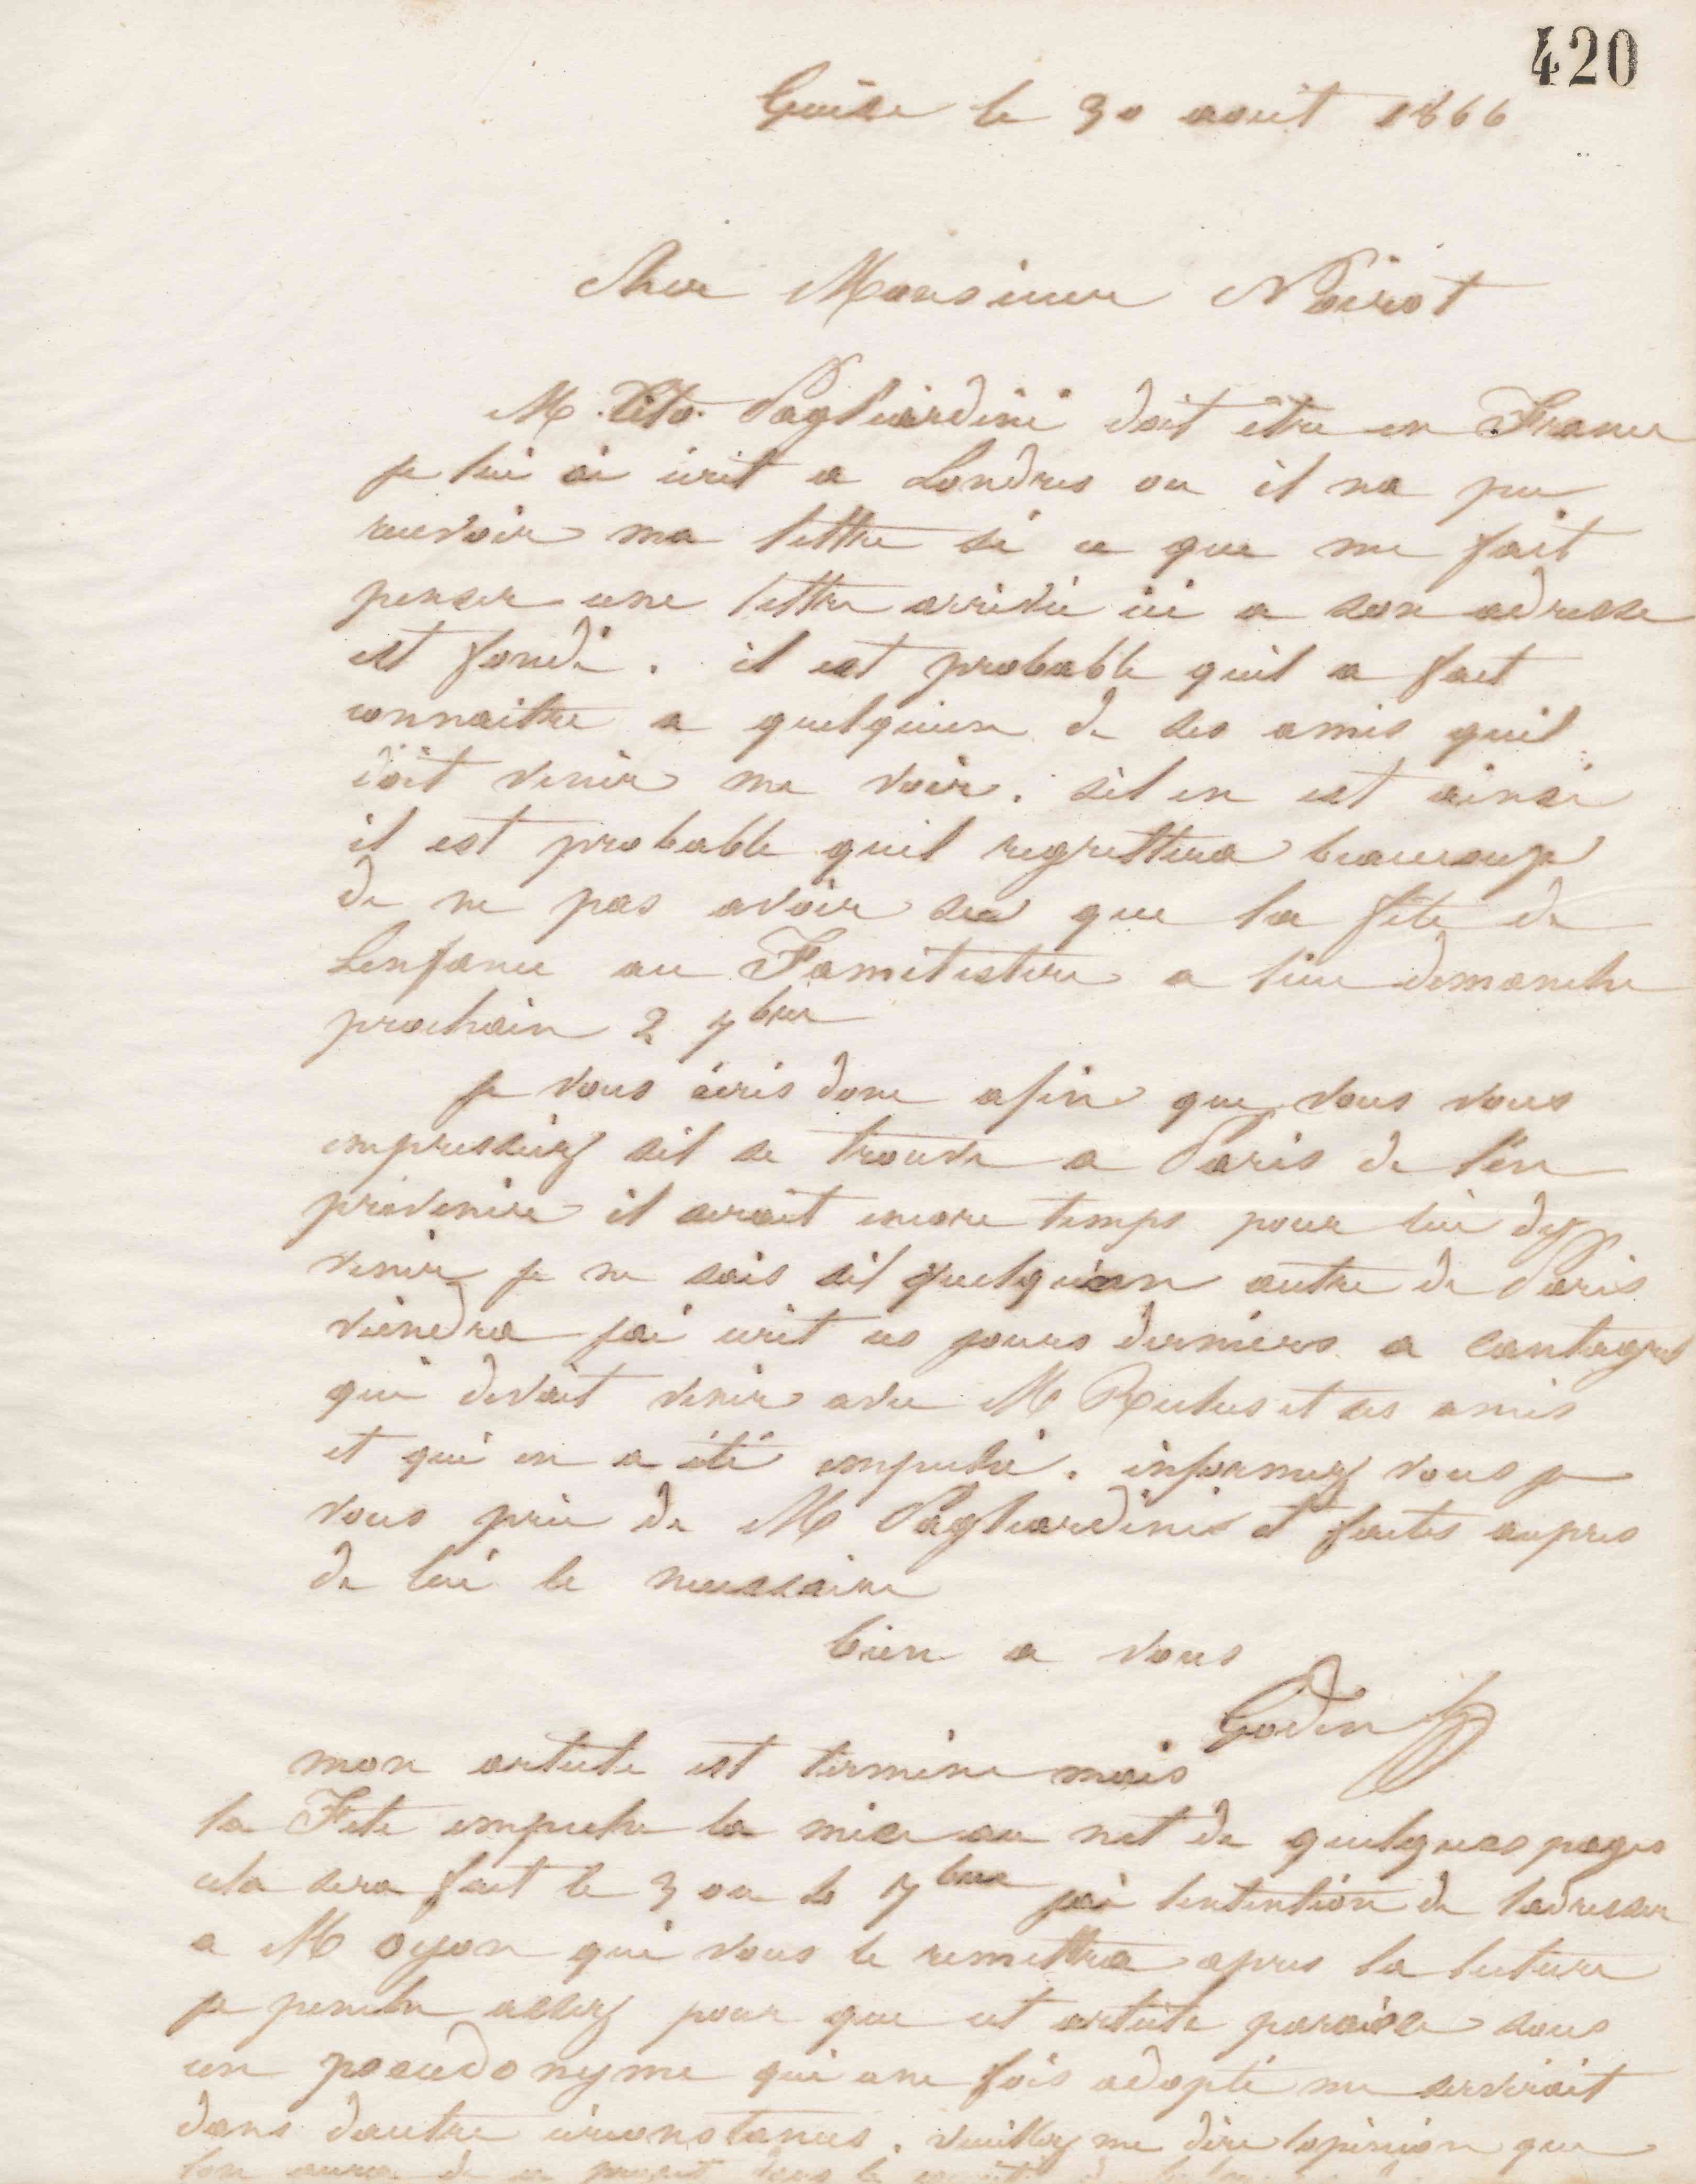 420
Guise le 30 aout 1866
Cher Monsieur Noirot
M. Tito Pagliardini doit être en France
je lui ai écrit a Londres ou il na pu
recevoir ma lettre si ce que me fait
penser une lettre arrivée ici a son adresse
est fondé. il est probable quil a fait
connaitre a quelquun de ses amis quil
doit venir me voir. sil en est ainsi
il est probable quil regrettera beaucoup
de ne pas avoir su que la fête de
Lenfance au Familistere a lieu dimanche
prochain 2 7bre
je vous écris donc afin que vous vous
empressiez sil se trouve a Paris de l'en
prévenir il serait encore temps pour lui dy
venir je ne sais sil quelquun autre de Paris
viendra jai ecrit ces jours derniers a Cantagrel
qui devait venir avec M Reclus et ses amis
et qui en a été empeché. informez vous je
vous prie de M Pagliardini et faites aupres
de lui le necessaire
bien a vous
Godin
mon article est terminé mais
la Fete empeche la mise au net de quelques pages
cela sera fait le 3 ou le 7bre jai lintention de ladresser
a M Oyon qui vous le remettra apres la lecture
je penche assez pour que cet article paraisse sous
un pseudonyme qui une fois adopté me servirait
dans dautre circonstances. veuillez me dire lopinion que
lon aura de ce projet dans le